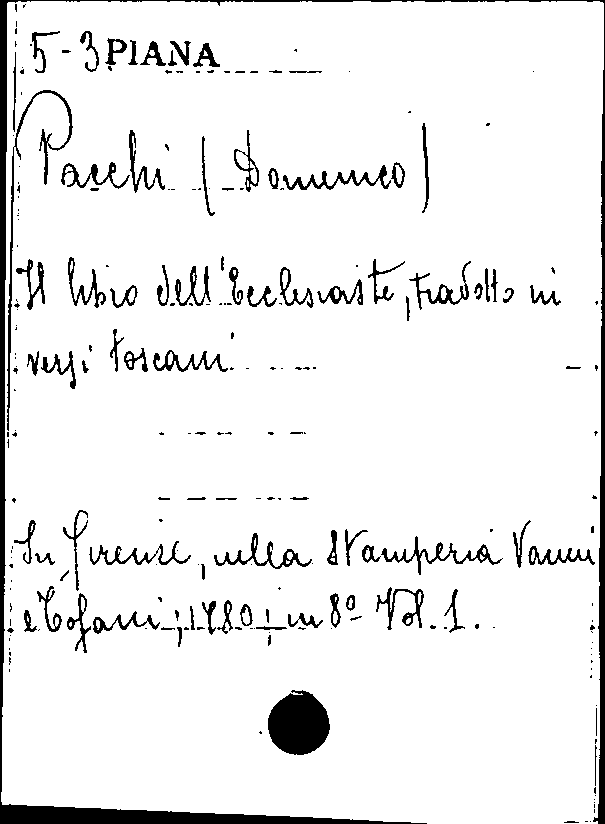 5-3 PIANA
Pacchi (Domenico)
Il libro dell'Ecclesiaste, tradotto in
versi toscani
In Firenze, nella Stamperia Vanni
e Tofani, 1780, in 8º Vol. 1.